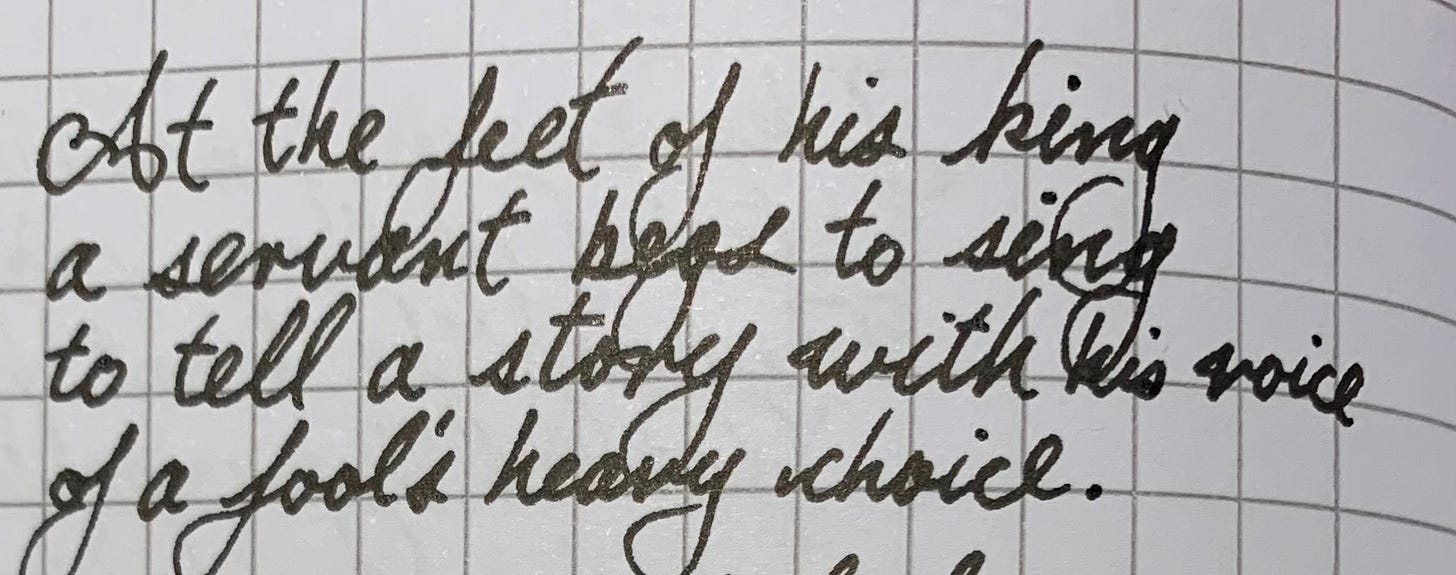 At the feet of his king
a servant begs to sing
to tell a story with his voice
of a fool's heavy choice.